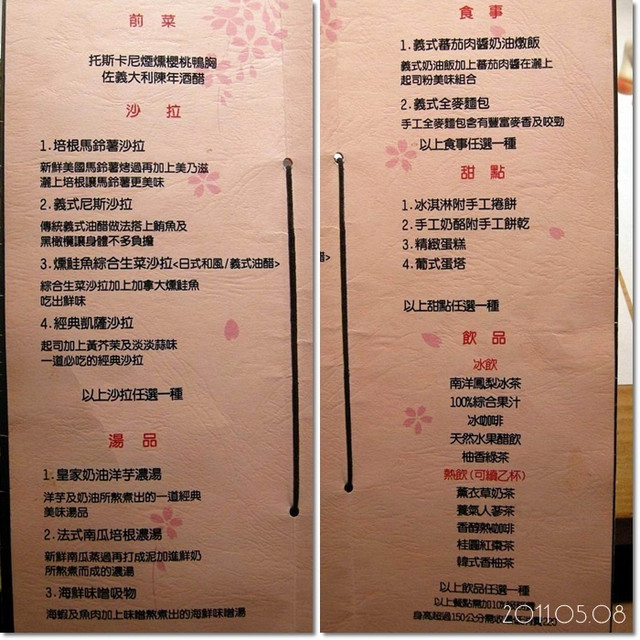 前菜
托斯卡尼煙燻櫻桃鴨胸
佐義大利陳年酒醋
沙拉
1.培根馬鈴薯沙拉
新鮮美國馬鈴薯烤過再加上美乃滋
灑上培根讓馬鈴薯更美味
2.義式尼斯沙拉
傳統義式油醋做法搭上鮪魚及
黑橄欖讓身體不多負擔
3.燻鮭魚綜合生菜沙拉<日式和風/義式油醋>
綜合生菜沙拉加上加拿大燻鮭魚
吃出鮮味
4.經典凱薩沙拉
起司加上黃芥茉及淡淡蒜味
一道必吃的經典沙拉
以上沙拉任選一種
湯品
1.皇家奶油洋芋濃湯
洋芋及奶油所熬煮出的一道經典
美味湯品
2.法式南瓜培根濃湯
新鮮南瓜蒸過再打成泥加進鮮奶
所熬煮而成的濃湯
3.海鮮味噌吸物
海蝦及魚肉加上味噌熬煮出的海鮮味噌湯
食事
1.義式蕃茄肉醬奶油燉飯
義式奶油飯加上蕃茄肉醬在灑上
起司粉美味組合
2.義式全麥麵包
手工全麥麵包含有豐富麥香及咬勁
以上食事任選一種
甜點
1.冰淇淋附手工捲餅
2.手工奶酪附手工餅乾
3.精緻蛋糕
4.葡式蛋塔
醋>
以上甜點任選一種
飲品
冰飲
南洋鳳梨冰茶
100%綜合果汁
冰咖啡
天然水果醋飲
柚香綠茶
熱飲(可續乙杯)
薰衣草奶茶
養氣人蔘茶
香醇熱咖啡
桂圓紅棗茶
韓式香柚茶
以上飲品任選一種
以上餐點需加10%
身高超過150公分需收
2011.05.08